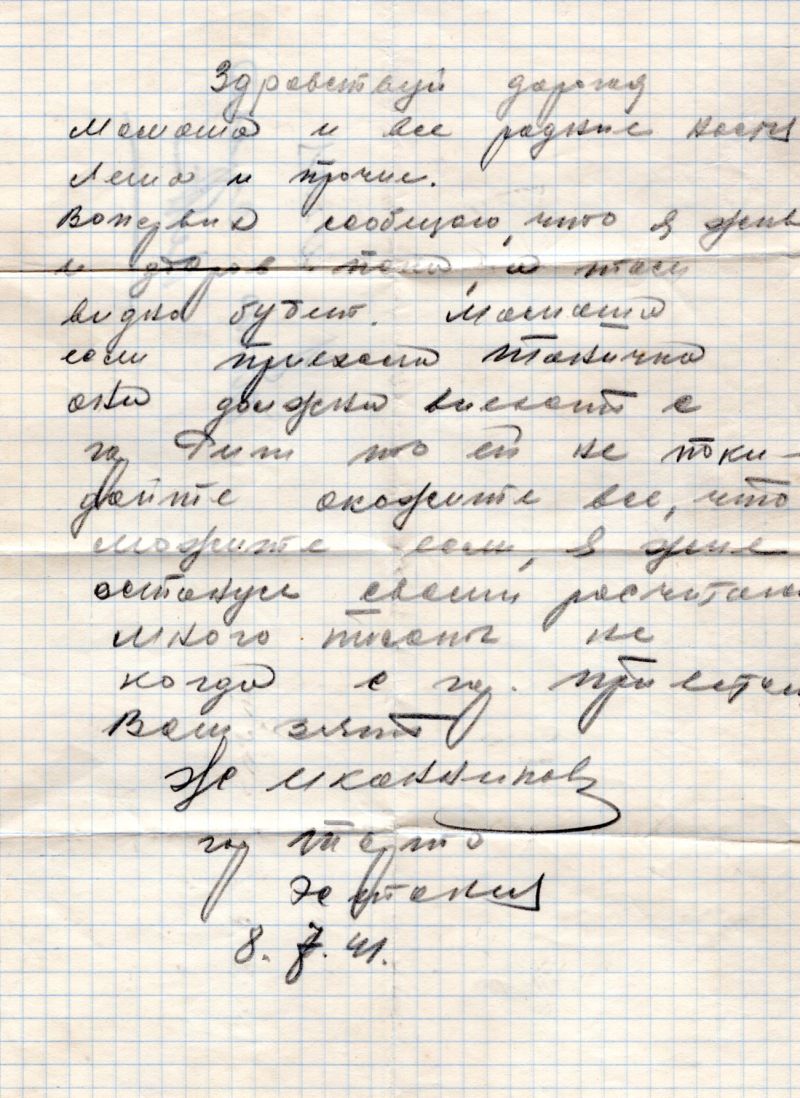 Здравствуй дорогая
Мамаша и все родние Костя
Леша и прочие.
Вопервих сообщаю, что я жив
и здоров пока, а там
видно будит. Мамаша
если приехала Таничка
она должна виехать с
гор то ей не поки-
дайте окажите все, что
можите если, я жив
останус своим расчитаюс
много писать не
когда с гор.
Ваш зять
гор Тарто
Эстония
8. 7. 41.